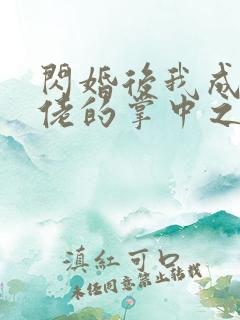 閃婚後我成
佬的掌中之
滇紅可口
未经同意禁止转载